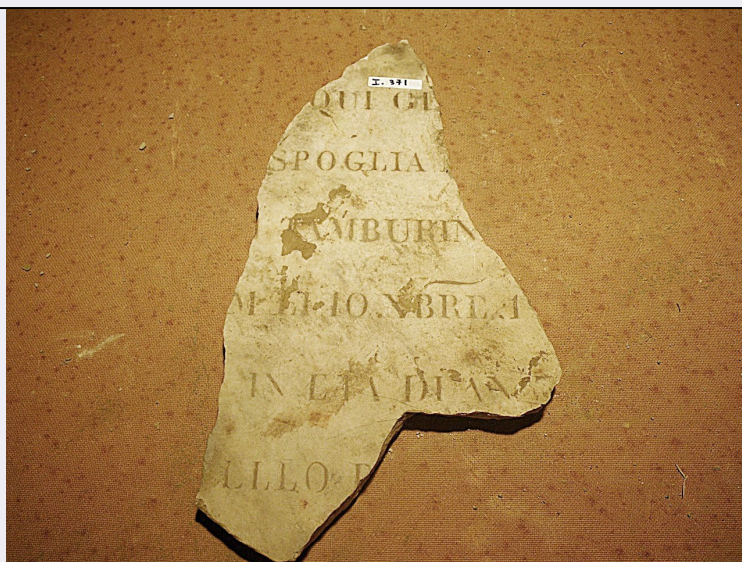 I. 371
QUI GI
SPOGLIA
AMBURIN
IO. NBRE. 1
IN ETA DI AN
LLLO